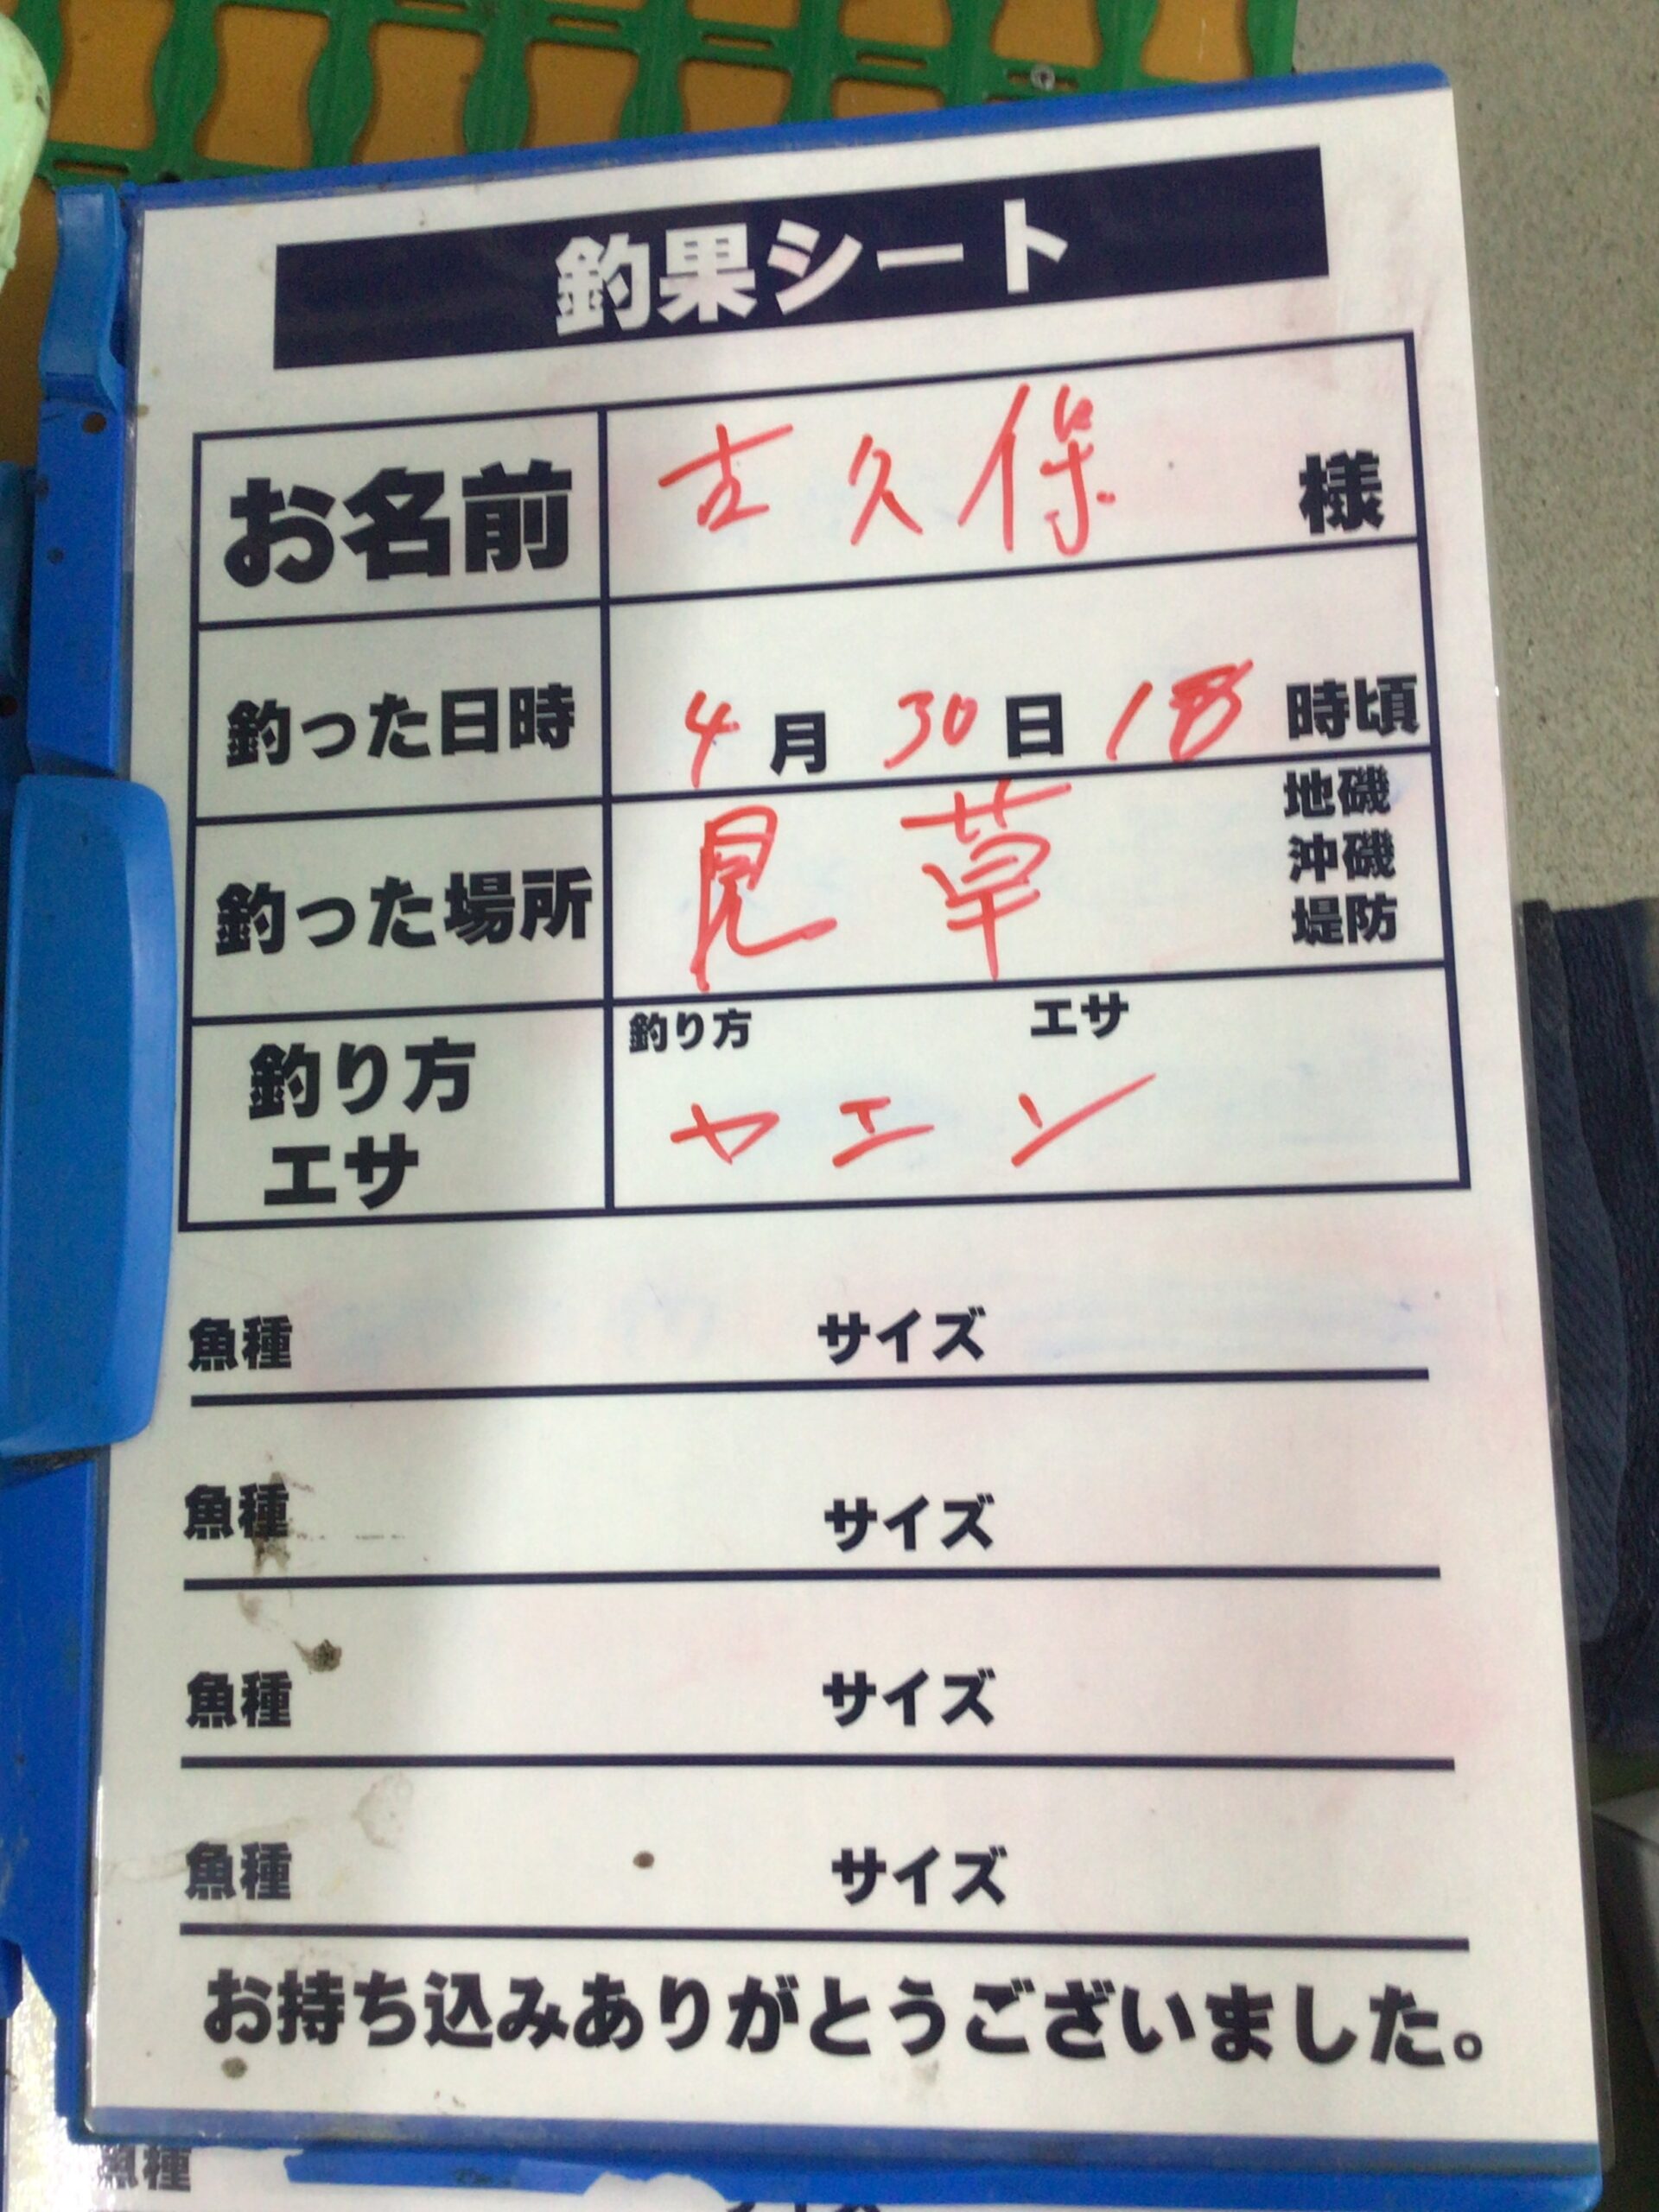 釣果シート
お名前 古久保 様
釣った日時 4月30日18時頃
釣った場所 見草 地磯
沖磯
堤防
釣り方 エサ
釣り方
エサ
ヤエン
魚種 サイズ
魚種 サイズ
魚種 サイズ
魚種 サイズ
お持ち込みありがとうございました。
魚種